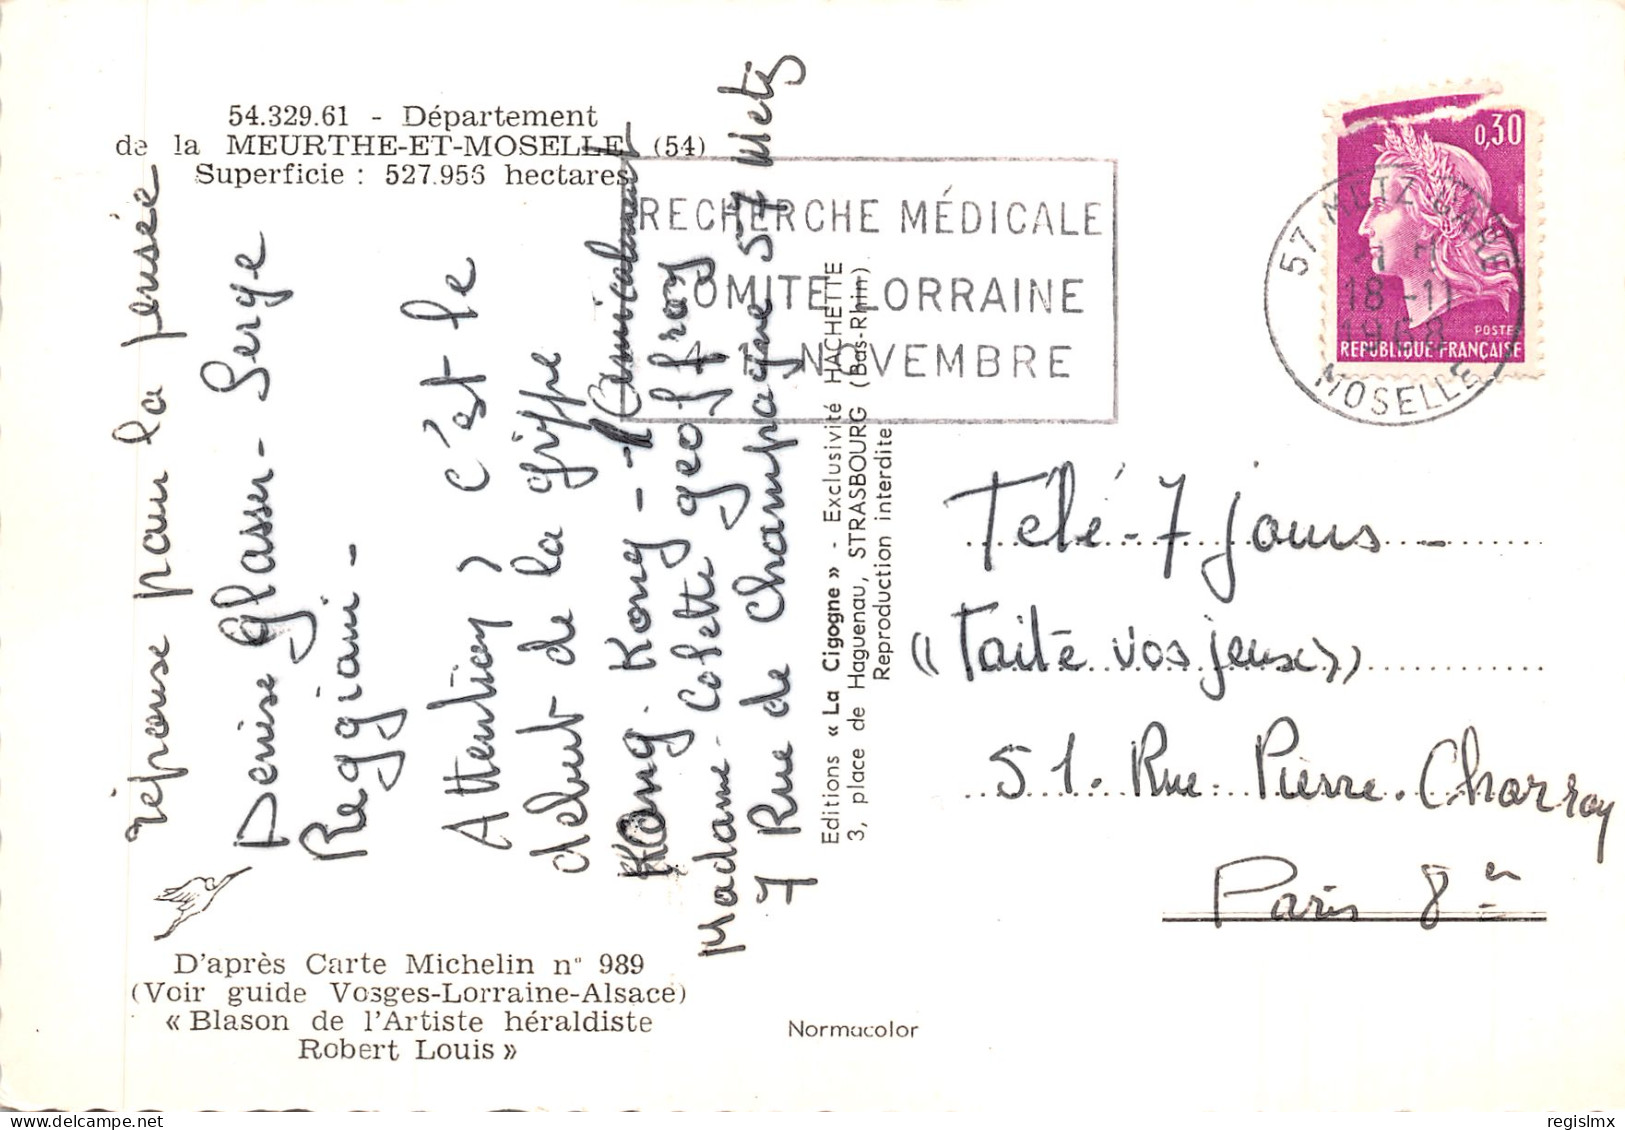 54.329.61 - Département
de la MEURTHE-ET-MOSELLE (54)
Superficie : 527.956 hectares
réponse pour la pensée
Denise Glaser - Serge
Reggiani -
Attention, c'est le
début de la grippe
Kong. Kong - Amicalement
Madame Colette geoffroy
7 Rue de Champagne 57 Metz
D'après Carte Michelin n° 989
(Voir guide Vosges-Lorraine-Alsace)
« Blason de l'Artiste héraldiste
Robert Louis »
Editions « La Cigogne » - Exclusivité HACHETTE
3, place de Haguenau, STRASBOURG (Bas-Rhin)
Reproduction interdite
Normacolor
RECHERCHE MÉDICALE
COMITE LORRAINE
NOVEMBRE
0,30
POSTES
REPUBLIQUE FRANÇAISE
57 METZ GARE
18 -11
1968
MOSELLE
Télé-7 jours -
« Faite vos jeux »
51. Rue Pierre. Charray
Paris 8er
www.delcampe.net
regislmx